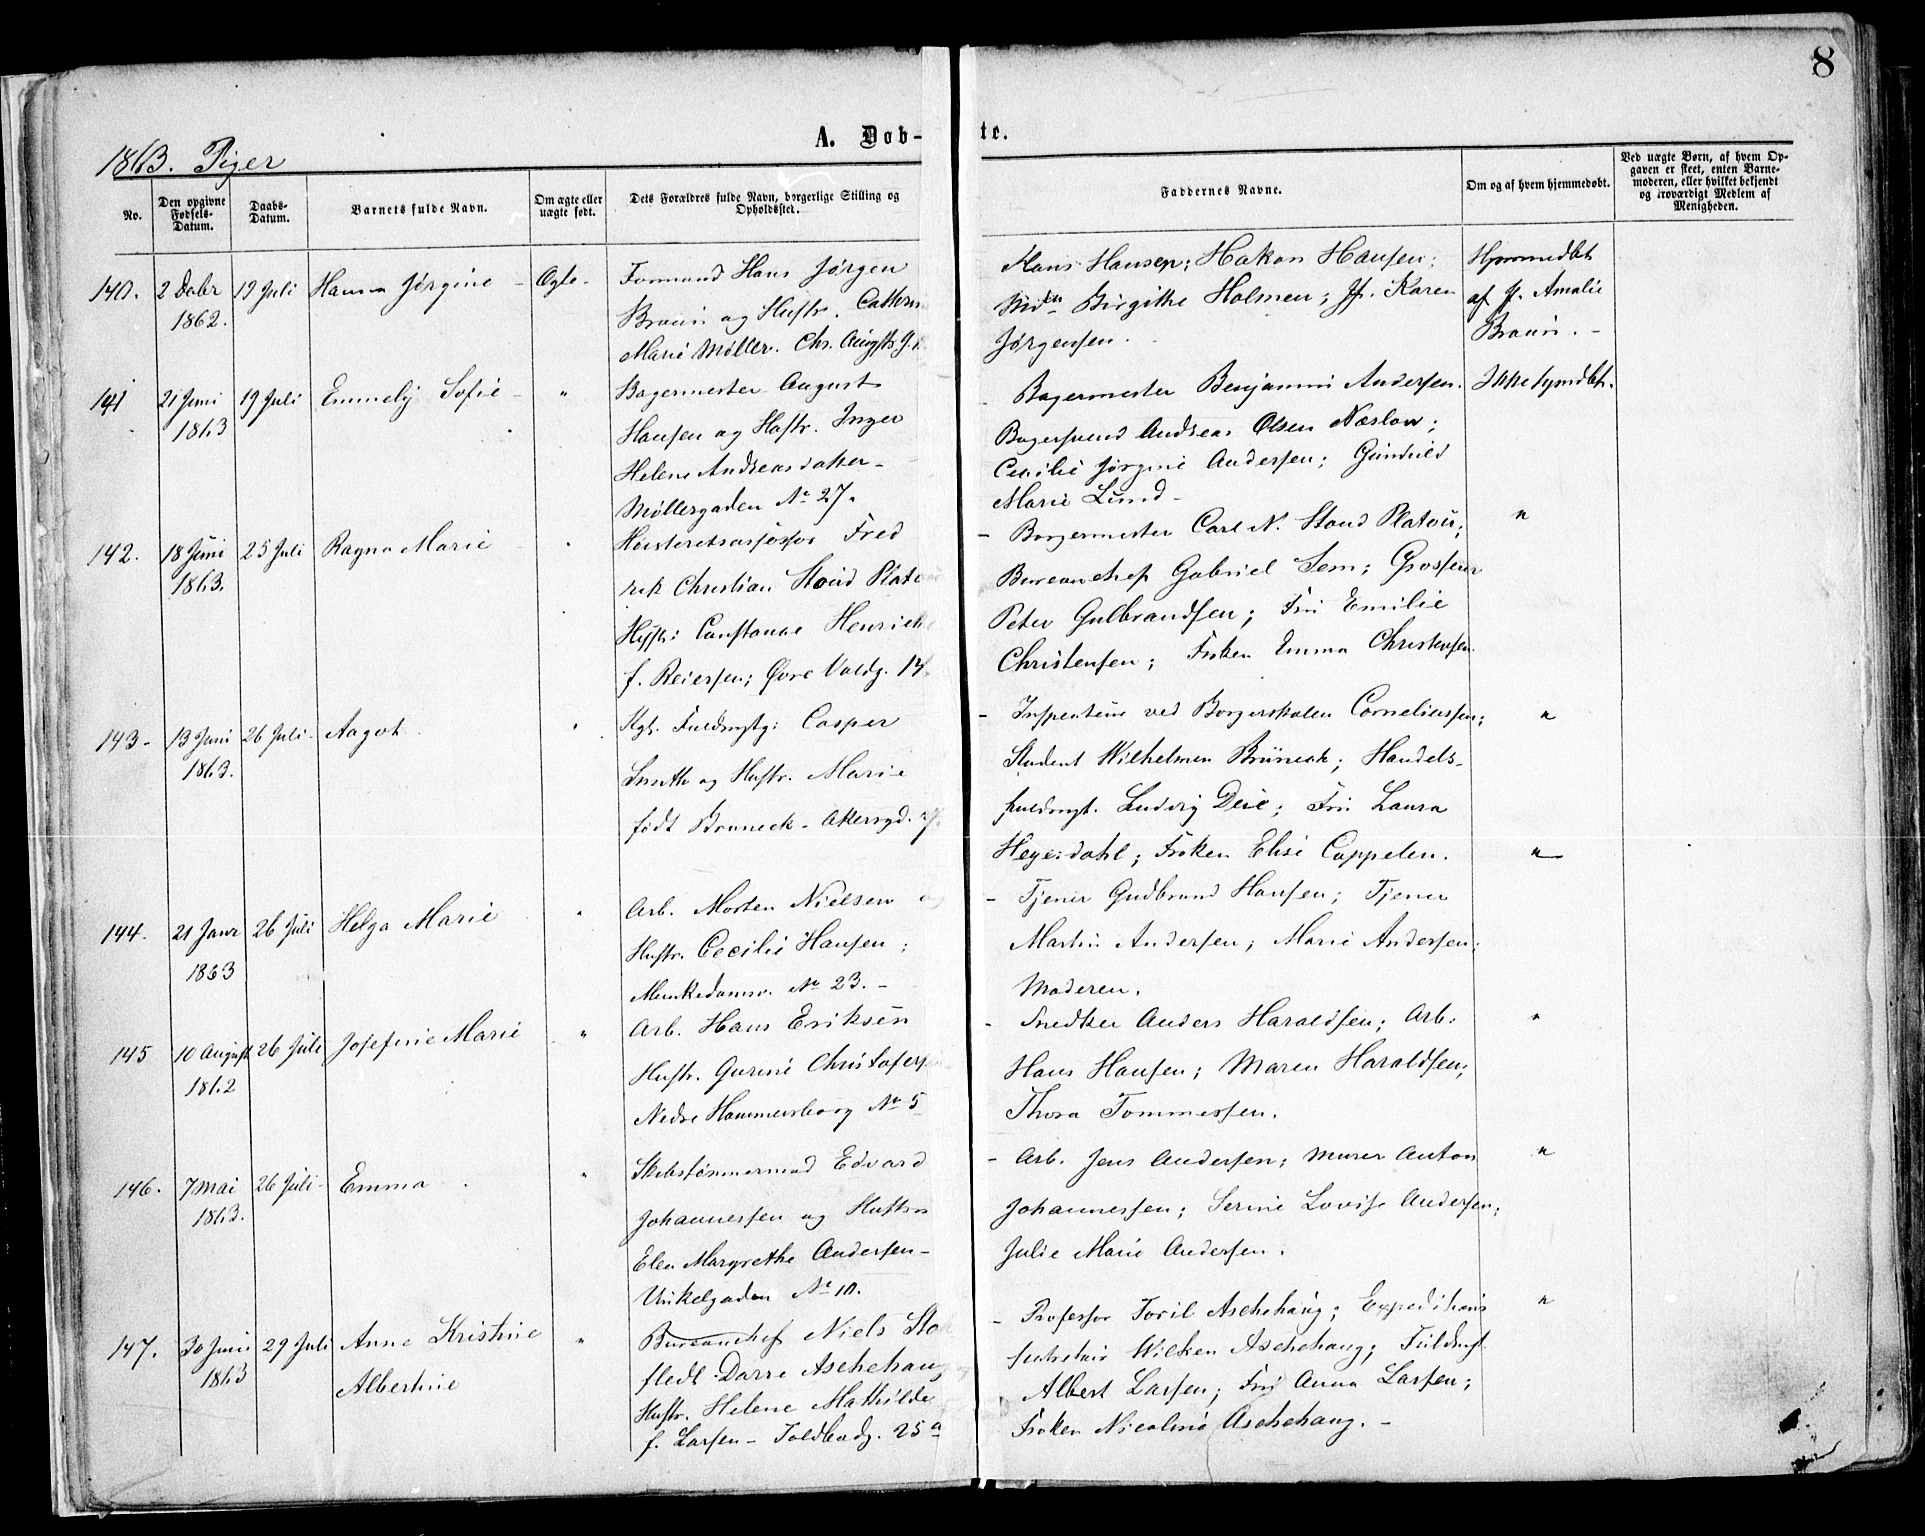 8
A. Døb-te.
1863. Piger
No.
Den opgivne Fødsels-Datum.
Daabs-Datum.
Barnets fulde Navn.
Om ægte eller uægte født.
Dets Forældres fulde Navn, borgerlige Stilling og Opholdssted.
Faddernes Navne.
Om og af hvem hjemmedøbt.
Ved uægte Børn, af hvem Opgaven er skeet, enten Barnemoderen, eller hvilket bekjendt og troværdigt Medlem af Menigheden.
140. 2 Dcbr 19 Juli Hanna Jørgine - Ægte -
1862.
Formand Hans Jørgen
Braun og Hustr. Cathrin
Marie Møller. Chr. Augusts g.
Hans Hansen; Hakon Hansen;
Birgithe Holmen; Jfr. Karen
Jørgensen.
Hjemmedøbt
af J. Amalie
Braun. -
141 21 Juni 19 Juli Emmely Sofie - "
1863
Bagermester August
Hansen og Hustr. Inger
Helene Andreasdatter -
Møllergaden No 27.
Bagermester Benjamin Andersen.
Bagersvend Andreas Olsen Næslow;
Cecilie Jørgine Andersen; Gunhild
Marie Lund -
Ikke hjmdbt.
142. 18 Juni 25 Juli Ragna Marie - "
1863.
Høiesteretsassessor Fred
rik Christian Stoud Platou
Hustr: Constance Henriette
f. Reiersen; Øvre Voldg. 14
- Borgermester Carl N. Stoud Platou;
Bureauchef Gabriel Sem; Grosserer
Peter Gulbrandsen; Fru Emilie
Christensen; Frøken Emma Christensen.
"
143 - 13 Juni 26 Juli - Aagot "
1863.
Kgl. Fuldmgtg: Casper
Smith og Hustr. Marie
født Bruneck - Akersgd. 7.
- Inspecteur ved Borgerskolen Corneliussen;
Student Wilhelmen Brüneck; Handels-
fuldmgt. Ludvig Deie; Fru Laura
Heyerdahl; Frøken Elise Cappelen.
"
144. 21 Janr 26 Juli Helga Marie "
1863
Arb. Morten Nielsen og
Hustr. Cecilie Hansen;
Munkedamsv. No 23. -
- Tjener Gudbrand Hansen; Tjener
Martin Andersen; Marie Andersen;
Moderen.
"
145 10 August 26 Juli Josefine Marie "
1862
Arb. Hans Eriksen
Hustr. Gurine Christofersen
Nedre Hammersborg No 5
- Snedker Anders Haraldsen; Arb:
Hans Hansen; Maren Haraldsen;
Thora Tommessen.
"
146. 7 Mai 26 Juli - Emma "
1863.
Skibstømmermand Edvard
Johannessen og Hustru
Elen Margrethe Andersen -
Vinkelgaden No 10.
- Arb. Jens Andersen; Murer Anton
Johannessen; Serine Lovise Andersen;
Julie Marie Andersen.
"
147. 30 Juni 29 Juli Anne Kristine "
1863 Albertine
Bureauchef Niels Stok
fledt Darre Aschehoug
Hustr. Helene Mathilde
f. Larsen - Toldbodg. 25 a
- Professor Torkil Aschehoug; Expeditions
sekretair Wilken Aschehoug; Fuldmgt.
Albert Larsen; Fru Anna Larsen;
Frøken Nicoline Aschehoug. -
"